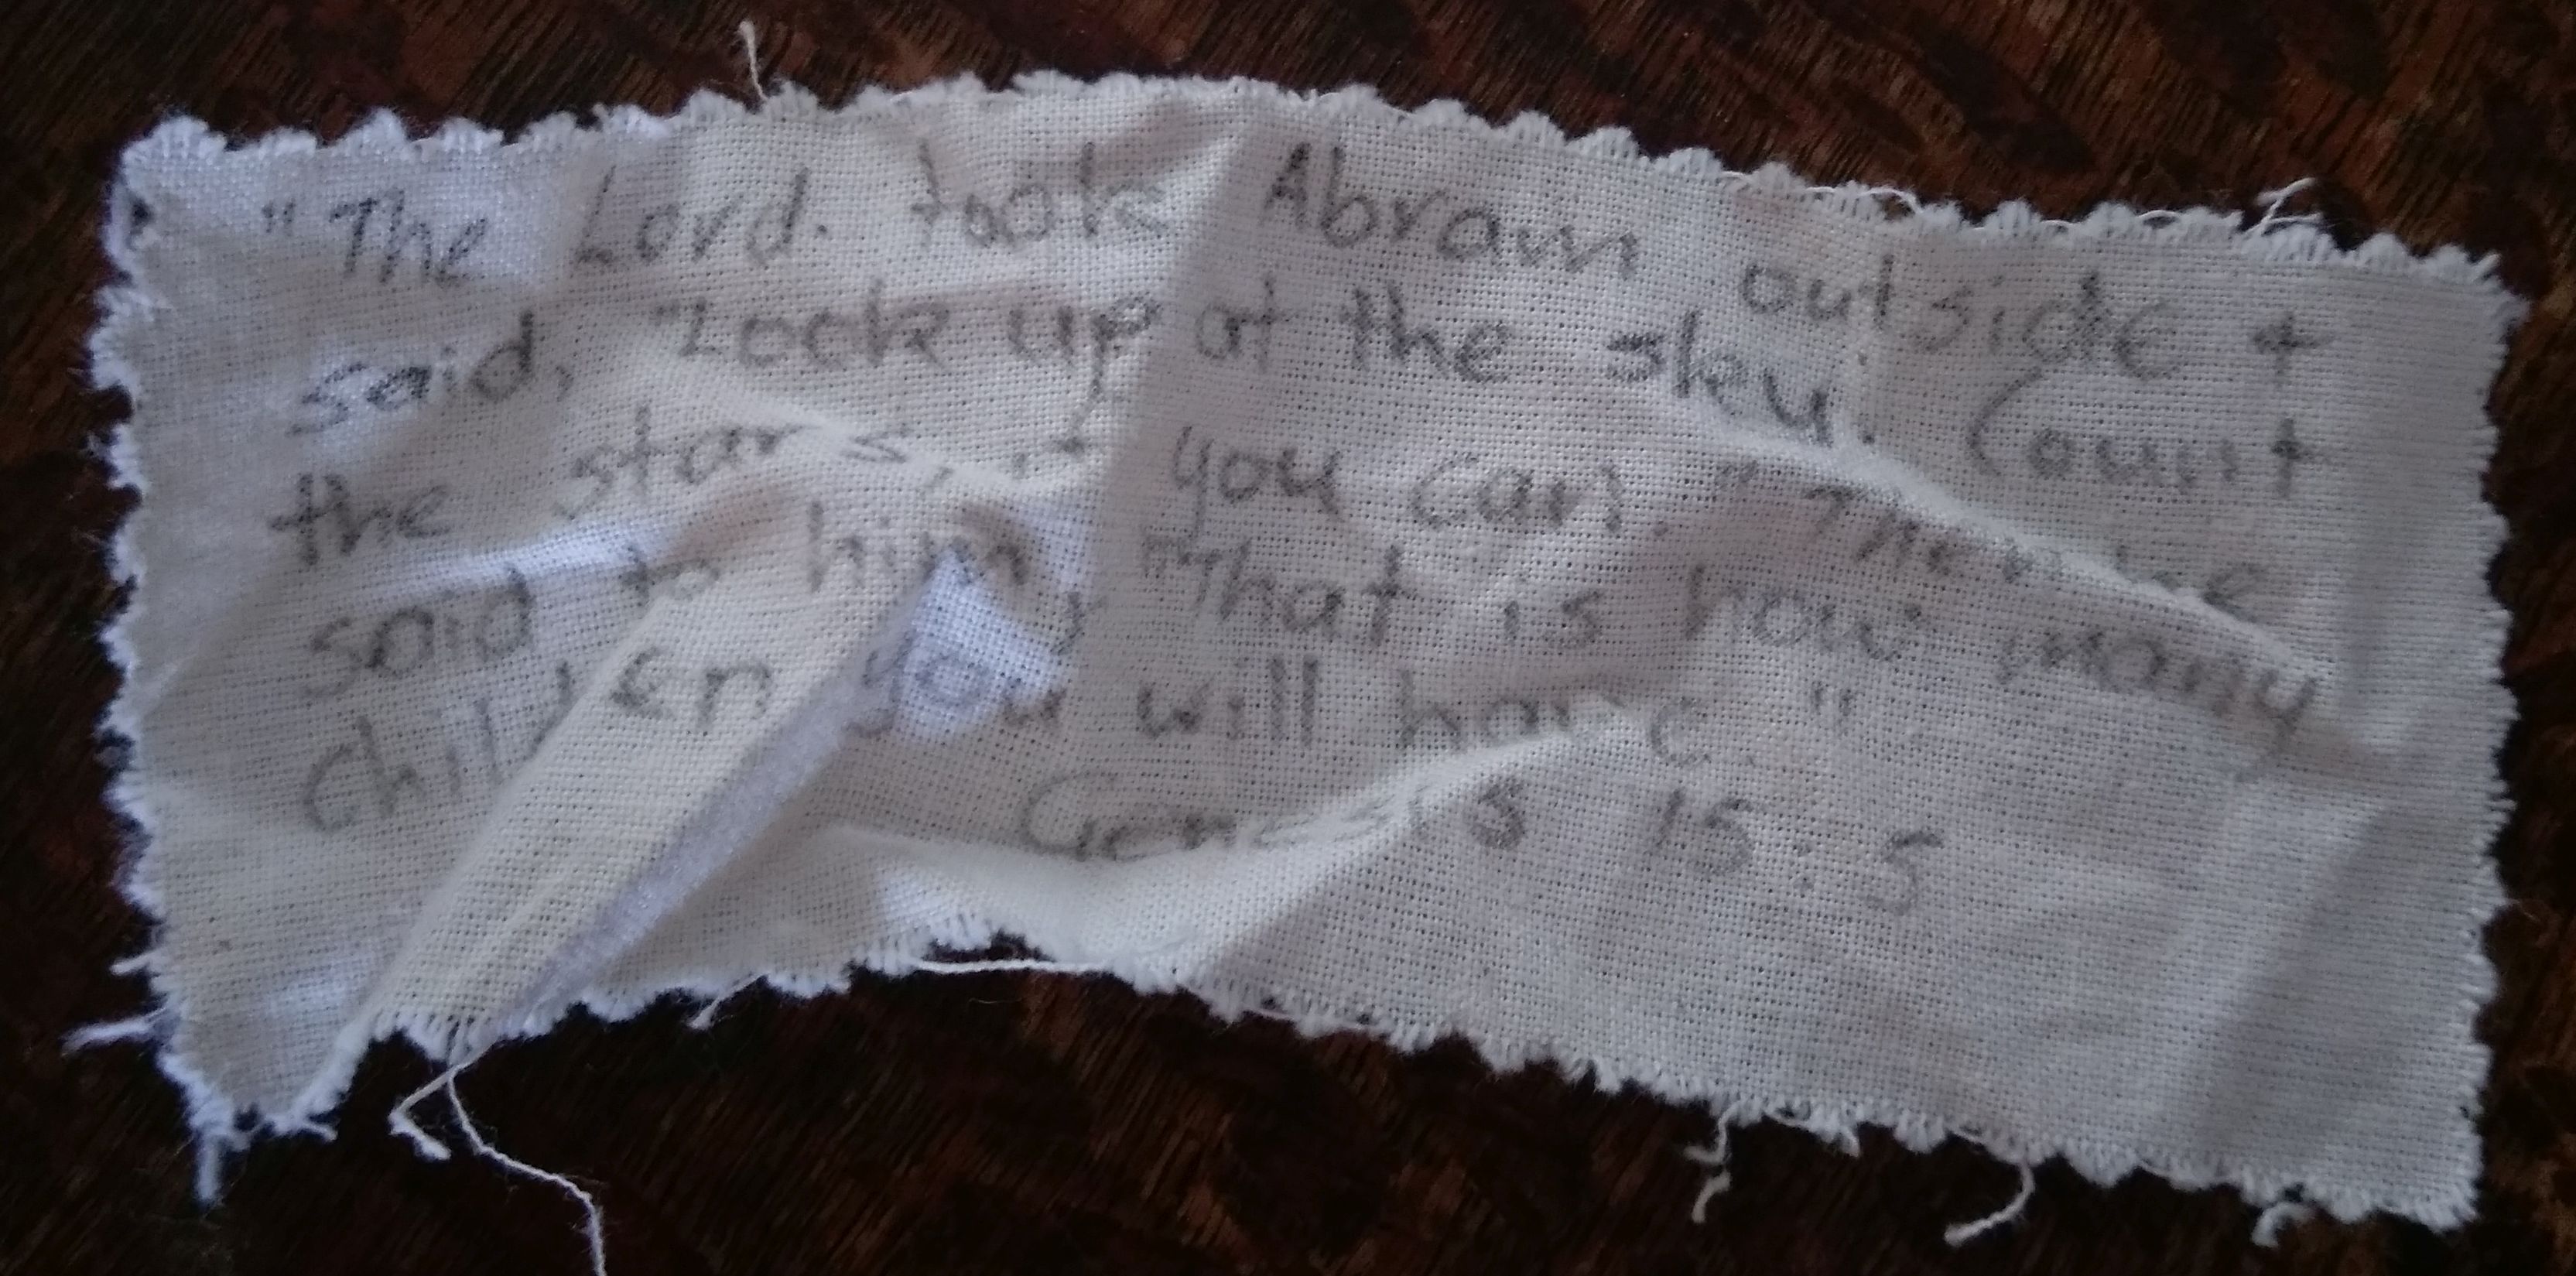 "The Lord. took Abram outside +
said, "Look up at the sky. Count
the stars, if you can." Then he
said to him, "That is how many
Children you will have."
Genesis 15:5